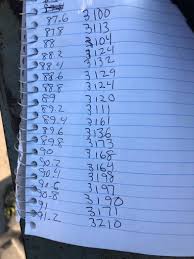 87.6 3100
87.8 3113
88 3104
88.2 3124
88.4 3132
88.6 3129
88.8 3124
89 3120
89.2 3111
89.4 3161
89.6 3136
89.8 3173
90 3168
90.2 3164
90.4 3198
90.6 3197
90.8 3190
91 3171
91.2 3210